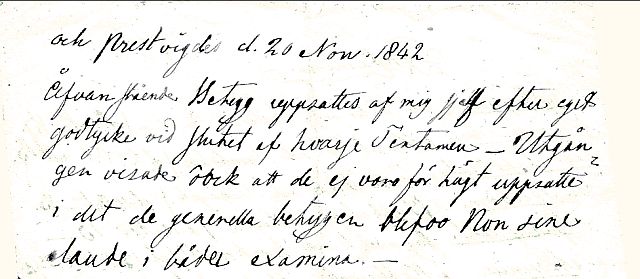 och prestvigdes d. 20 Nov. 1842
Åfvan stående Betyg uppsattes af mig sjelf efter eget
godtycke vid slutet af hvarje Tentamen — Utgån
gen visade att de ej voro för högt uppsatte
i det de generella betygen blefvo Non sine
laude i både examina. —